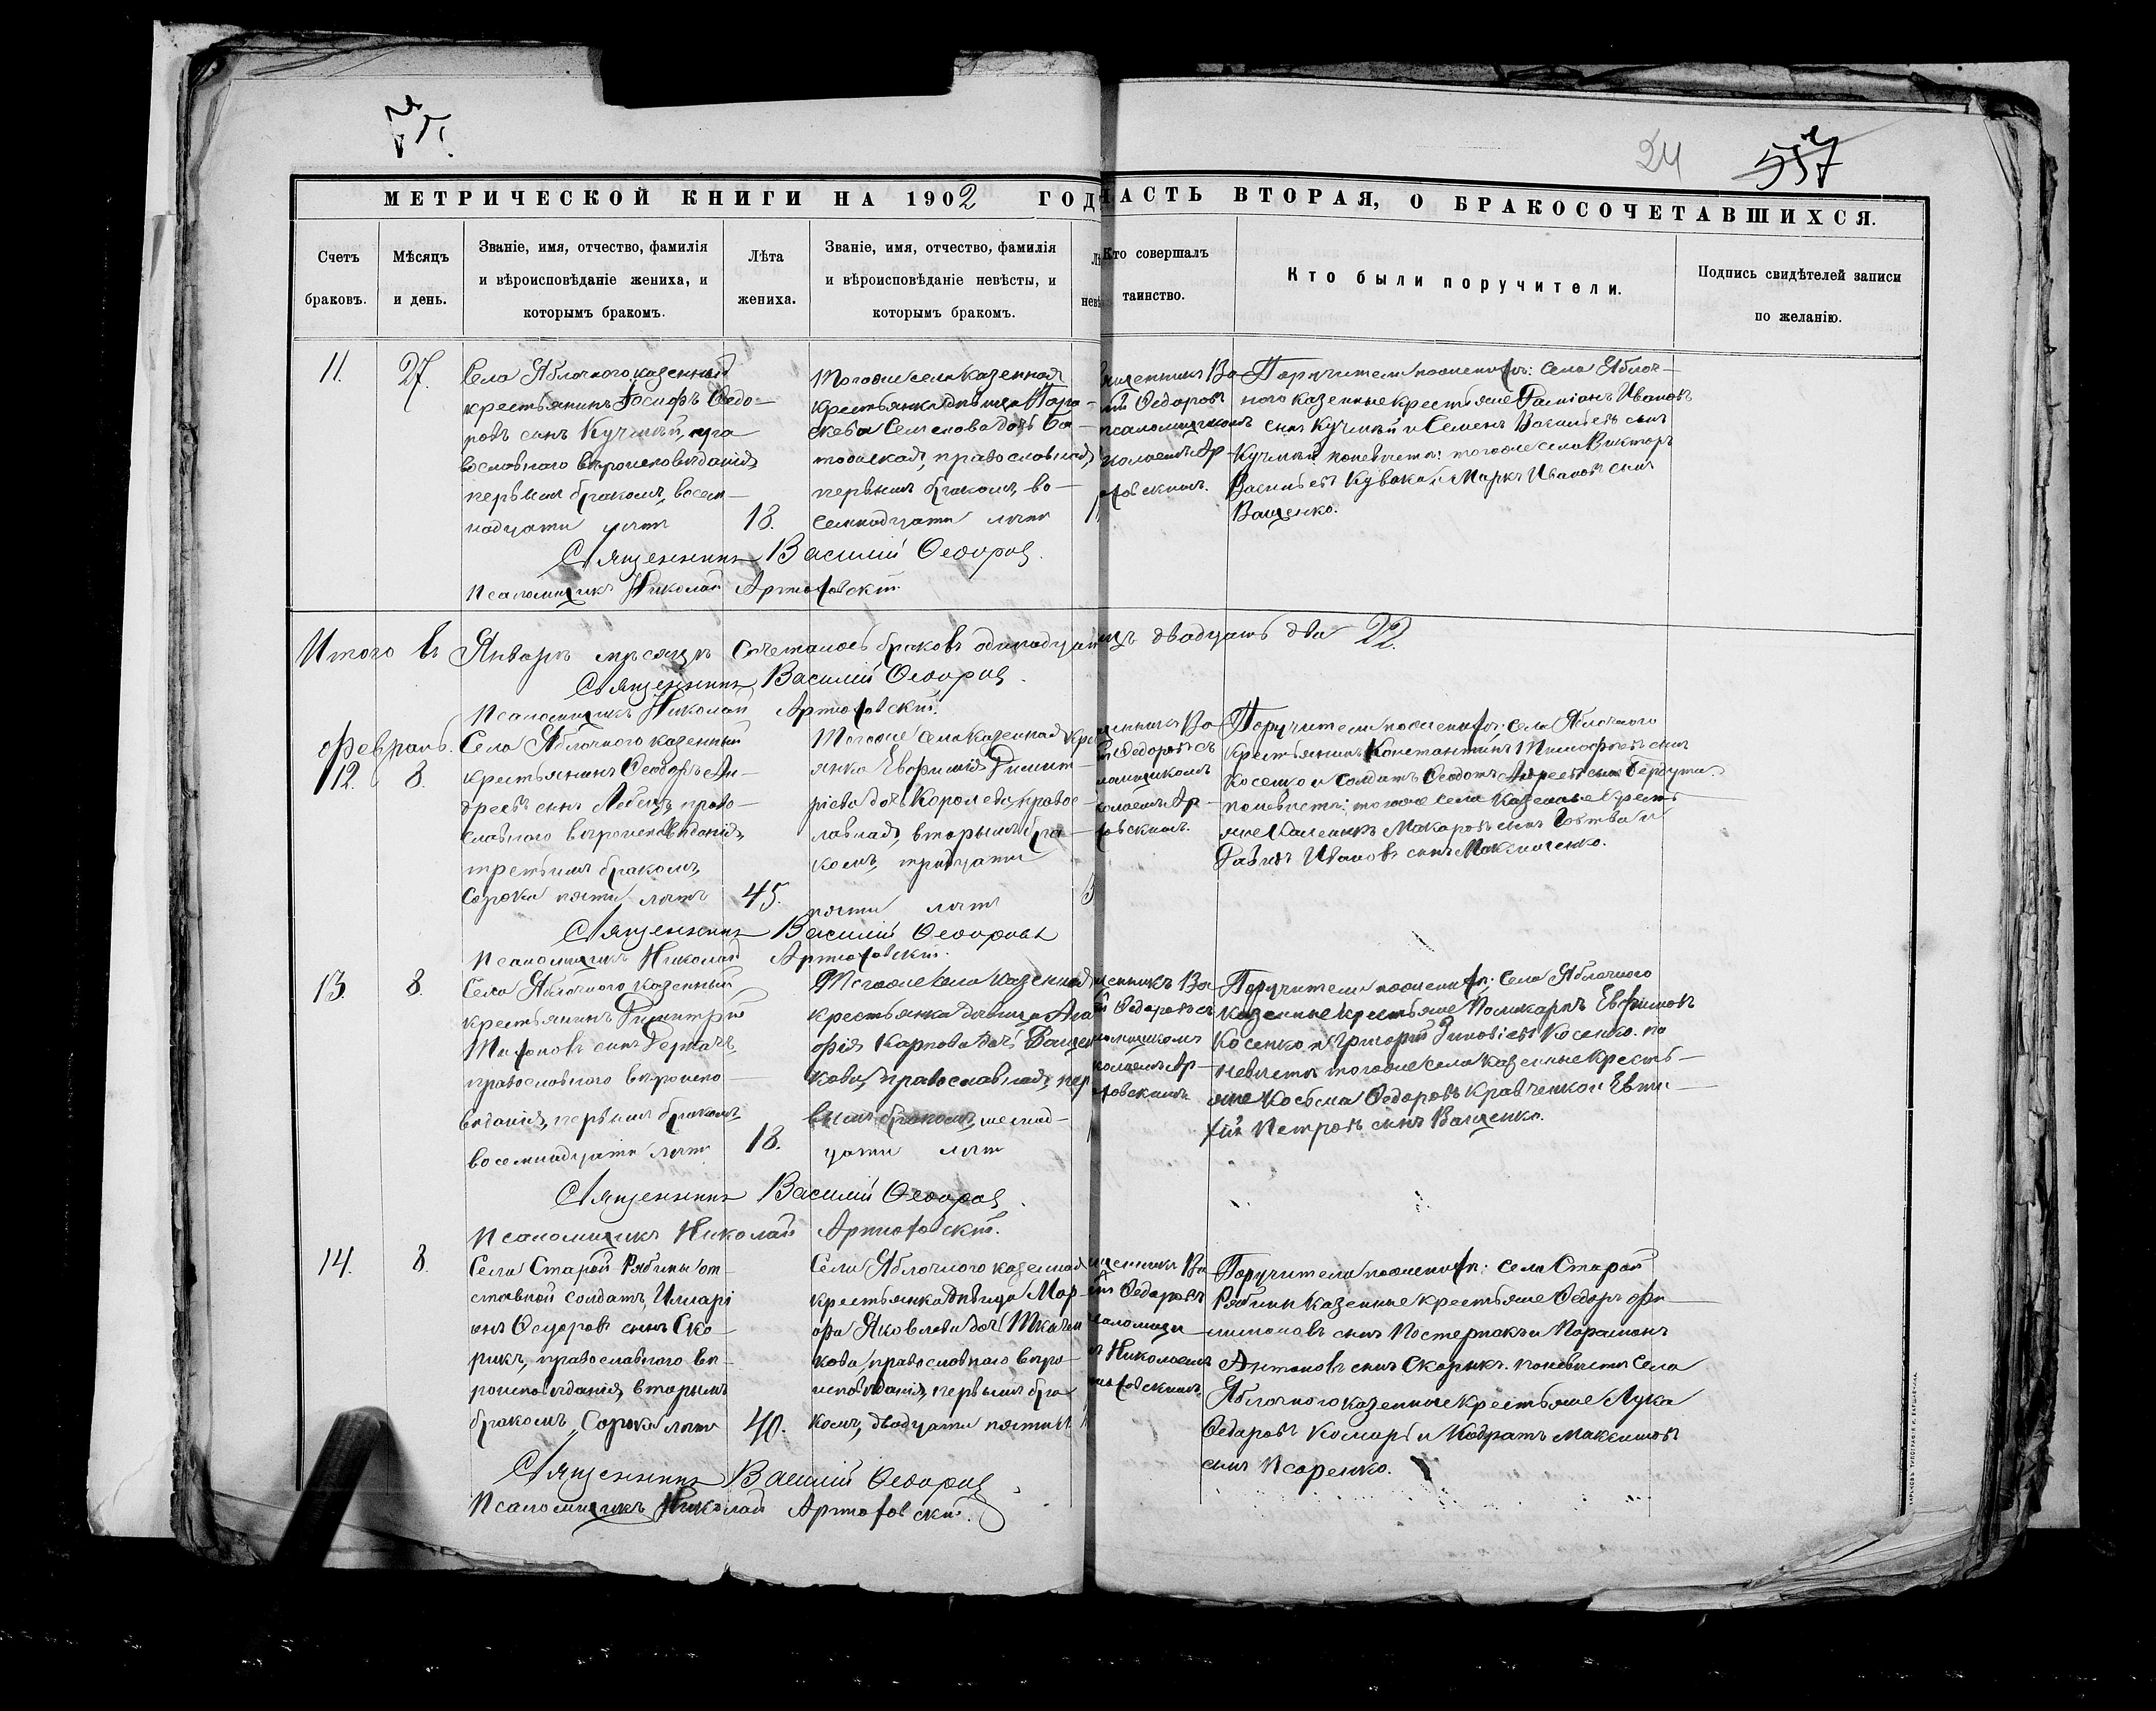 24
557
МЕТРИЧЕСКОЙ КНИГИ НА 1902 ГОД
ЧАСТЬ ВТОРАЯ, О БРАКОСОЧЕТАВШИХСЯ.
Счетъ браковъ.
Мѣсяцъ и день.
Званіе, имя, отчество, фамилія
и вѣроисповѣданіе жениха, и
которымъ бракомъ.
Лѣта жениха.
Званіе, имя, отчество, фамилія
и вѣроисповѣданіе невѣсты, и
которымъ бракомъ.
Кто совершалъ
таинство.
Кто были поручители.
Подпись свидѣтелей записи
по желанію.
11.
27.
Села Яблочного казенный
крестьянинъ Іосифъ Ѳедо-
ровъ сынъ Кучмій, пра
вославнаго вѣроисповѣданія,
первымъ бракомъ, восем-
надцати лѣтъ
18.
Того же села казенная
крестьянка дѣвица Пара-
скева Семенова дочь
православная,
первымъ бракомъ, во-
семнадцати лѣтъ
Ва-
Ѳедоровъ
псаломщикомъ
Ар-
Поручители по женихѣ: села Яблоч-
ного казенные крестьяне Даміанъ Ивановъ
сынъ Кучмій и Семенъ Васильевъ сынъ
Кучмій по невѣстѣ: того же села Викторъ
Васильевъ Кувака и Маркъ Ивановъ сынъ
Ващенко.
Священникъ Василій Ѳедоровъ
Псаломщикъ Николай Артюховскій
Итого въ Январѣ мѣсяцѣ сочеталось браковъ одинадцат
двадцать два 22.
Священникъ Василій Ѳедоровъ
Псаломщикъ Николай Артюховскій.
Февраль.
12.
8.
Села Яблочного казенный
крестьянинъ Ѳеодоръ Ан-
дреевъ сынъ Лебедь, право-
славнаго вѣроисповѣданія,
третьимъ бракомъ,
сорока пяти лѣтъ
45.
Того же села казенная крес
янка Евфимія Димит-
ріева дочь Королева, правос-
лавная, вторымъ бра-
комъ, тридцати
пяти лѣтъ
Ва-
Ѳедоровъ съ
Ар-
Поручители по женихѣ: села Яблочного
крестьянинъ Константинъ Тимофѣевъ сынъ
Косенко и солдатъ Ѳеодотъ Андреевъ сынъ
по невѣстѣ: того же села казенные кресть-
яне Макаровъ сынъ и
Ивановъ сынъ Максименко.
Священникъ Василій Ѳедоровъ
Псаломщикъ Николай Артюховскій.
13.
8.
Села Яблочного казенный
крестьянинъ Димитрій
сынъ Деркачъ,
православнаго вѣроиспо-
вѣданія, первымъ бракомъ
восемнадцати лѣтъ
18.
Того же села казенная
крестьянка дѣвица Ага
фія Карпова дочь Ващен
кова, православная, пер
вымъ бракомъ, шестнад-
цати лѣтъ
Ва
Ѳедоровъ съ
Ар-
Поручители по женихѣ: села Яблочного
казенные крестьяне Поликарпъ Евфимовъ
Косенко и Григорій Зиновіевъ Косенко. по
невѣстѣ того же села казенные кресть-
яне Косьма Ѳедоровъ Кравченко и Евти-
хій Петровъ сынъ Ващенко.
Священникъ Василій Ѳедоровъ
Псаломщикъ Николай Артюховскій.
14.
8.
Села Старой Рябины от-
ставной солдатъ, Иларі
онъ Ѳедоровъ сынъ Ско-
рикъ, православнаго вѣ-
роисповѣданія, вторымъ
бракомъ, сорока лѣтъ
40.
Села Яблочного казенная
крестьянка дѣвица Мар-
фа Яковлева дочь Ткачен
кова, православнаго вѣро-
исповѣданія, первымъ бра
комъ, двадцати пяти л.
Ва
Ѳедоровъ
Николаемъ
Поручители по женихѣ: села Старой
Рябины казенные крестьяне Ѳедоръ Фи-
лимоновъ сынъ Пастернакъ и Парамонъ
Антоновъ сынъ Скорикъ. по невѣстѣ села
Яблочного казенные крестьяне Лука
Ѳедоровъ Комарь и Кодратъ Максимовъ
сынъ Псаренко.
Священникъ Василій Ѳедоровъ
Псаломщикъ Николай Артюховскій.